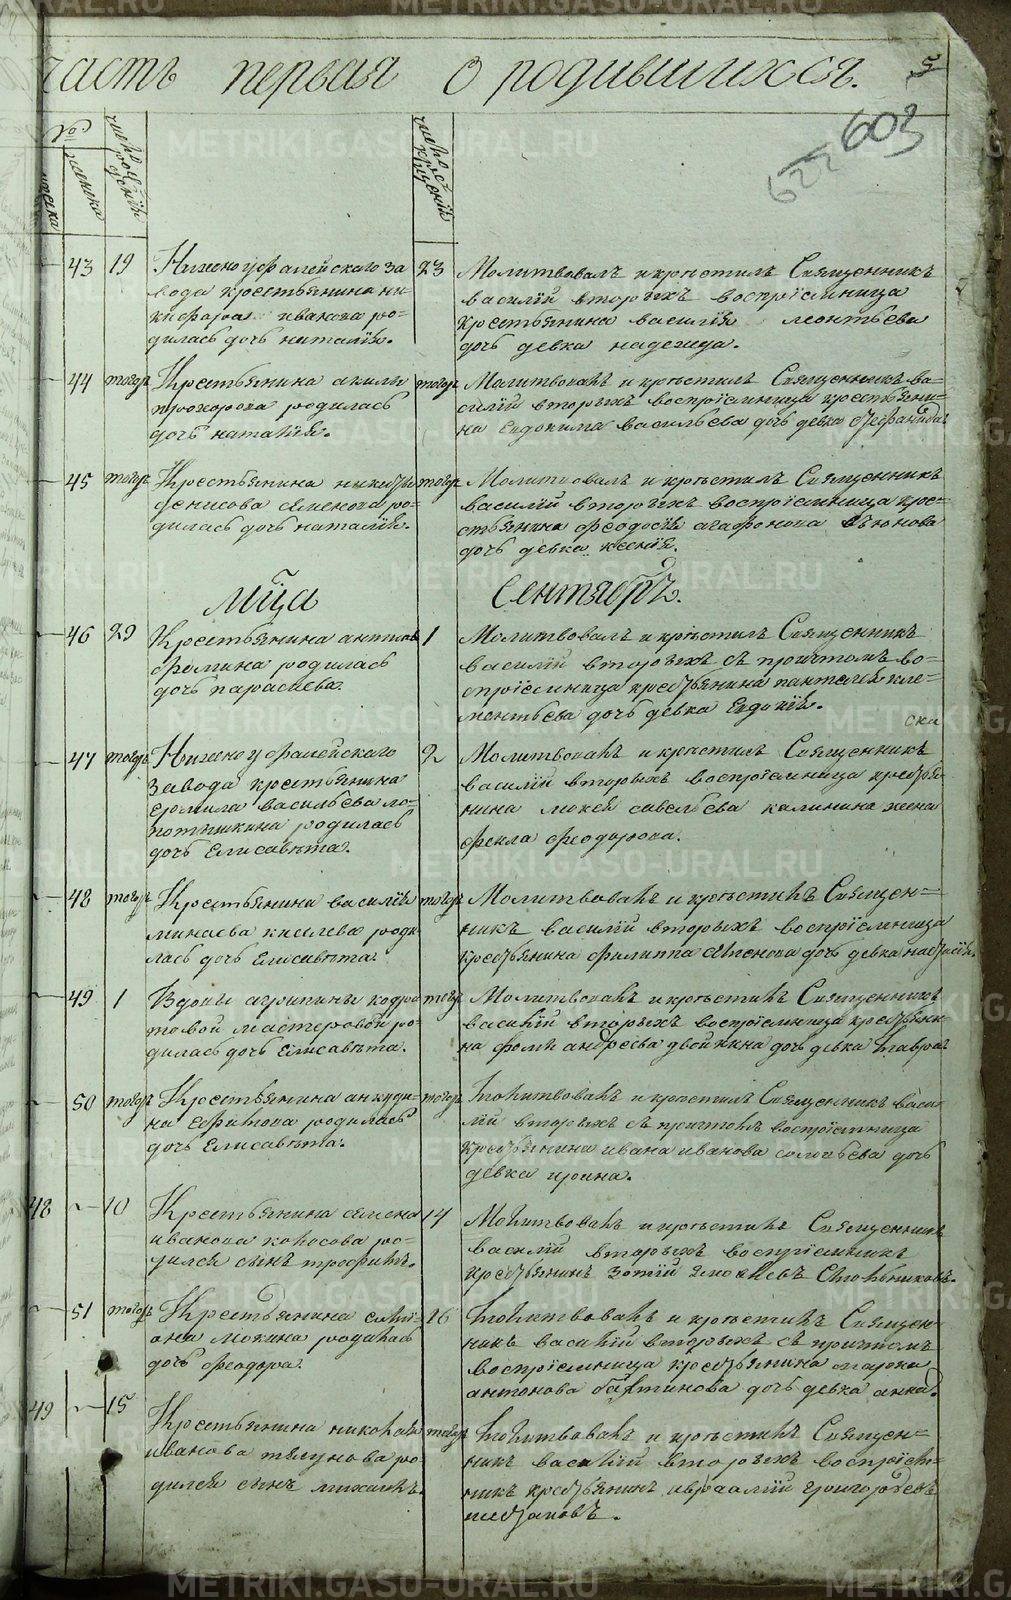 METRIKI.GASO-URAL.RU
часть первая о родившихся.
5
603
622
№
женска
число рождения
число крещенiя
43 19 Нижеоуфалейскаго за
вода крестьянина ни
кифора иванова ро-
дилась дочь наталiя.
23 Молитвовалъ и крѣстилъ Священникъ
василiй вторыхъ воспрiемница
крестьянина василiя леонтьева
дочь девка надежда.
44 тогоръ Крестьянина акилы
прохорова родилась
дочь наталiя.
тогоръ Молитвовалъ и крѣстилъ Священникъ ва-
силiй вторыхъ воспрiемница крестьяни-
на Евдокима васильева дочь девка
45 тогоръ Крестьянина никиты
денисова семенова ро-
дилась дочь наталiя.
тогоръ Молитвовалъ и крѣстилъ Священникъ
василiй вторыхъ воспрiемница кре-
стьянина феодосiя агафонова
дочь девка ксенiя.
Мца Сентябрь.
46 29 Крестьянина антипа
фомина родилась
дочь параскева.
1 Молитвовалъ и крѣстилъ Священникъ
василiй вторыхъ съ причтомъ во-
спрiемница крестьянина пантелея кле-
ментьева дочь девка Евдокiя.
47 тогоръ Нижеоуфалейскаго
завода крестьянина
ермила васильева ло-
потышкина родилась
дочь Елисавѣта.
2 Молитвовалъ и крѣстилъ Священникъ
василiй вторыхъ воспрiемница крестья
нина мокея савельева калинина жена
фекла феодорова.
48 тогоръ Крестьянина василiя
минаева киселева роди
лась дочь Елисавѣта.
тогоръ Молитвовалъ и крѣстилъ Священ-
никъ василiй вторыхъ воспрiемница
крестьянина филиппа семенова дочь девка настасiя.
49 1 Вдовы агрипины кодра
товой мастеровой ро-
дилась дочь Елисавѣта.
тогоръ Молитвовалъ и крѣстилъ Священникъ
василiй вторыхъ воспрiемница крестьяни-
на фомы андреева двойнина дочь девка
50 тогоръ Крестьянина анкуди-
на Ефимова родилась
дочь Елисавѣта.
тогоръ Молитвовалъ и крѣстилъ Священникъ васи
лiй вторыхъ съ причтомъ воспрiемница
крестьянина ивана иванова соловьева дочь
девка ирина.
48 10 Крестьянина семена
иванова колосова ро-
дился сынъ трофимъ.
14 Молитвовалъ и крѣстилъ Священникъ
василiй вторыхъ воспрiемникъ
крестьянинъ Зотiй
51 тогоръ Крестьянина
мокина родилась
дочь феодора.
16 Молитвовалъ и крѣстилъ Священ-
никъ василiй вторыхъ съ причтомъ
воспрiемница крестьянина марка
антонова дочь девка анна.
49 15 Крестьянина николая
иванова тягунова ро-
дился сынъ михаилъ.
тогоръ Молитвовалъ и крѣстилъ Священ-
никъ василiй вторыхъ воспрiем-
никъ крестьянинъ авраамiй григорьевъ
шестаковъ.